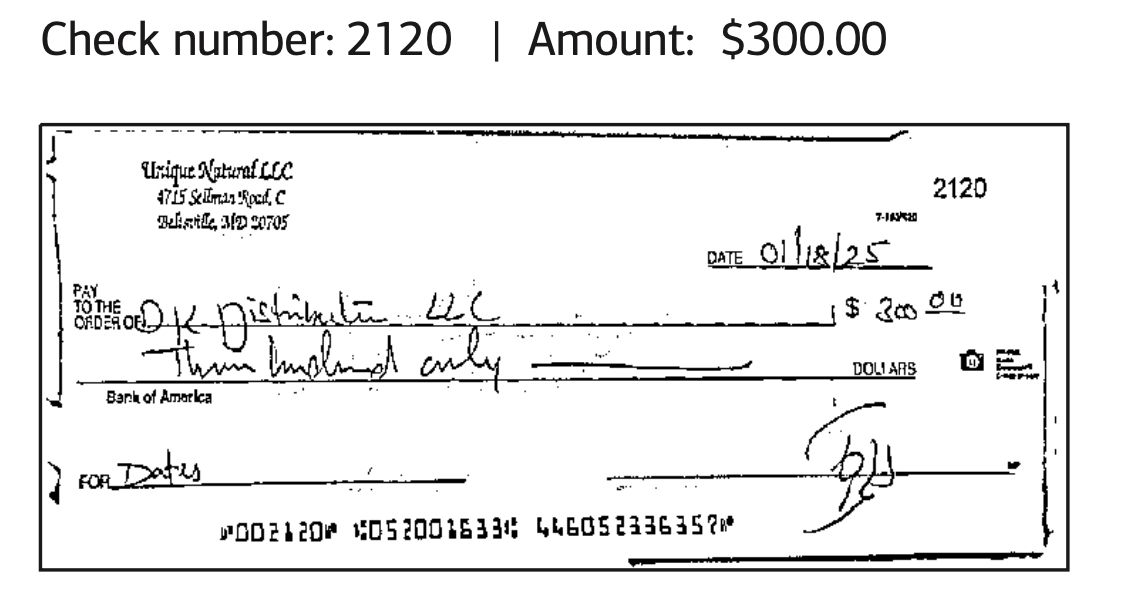 Check number: 2120 | Amount: $300.00
Unique Natural LLC
4715 Sellman Road, C
Beltsville, MD 20705
2120
DATE 01/18/25
PAY
TO THE
ORDER OF DK Distributin LLC $ 300 00
Three hundred only DOLLARS
Bank of America
FOR Dates
⑈002120⑈ ⑆052001633⑆ 446052336357⑈